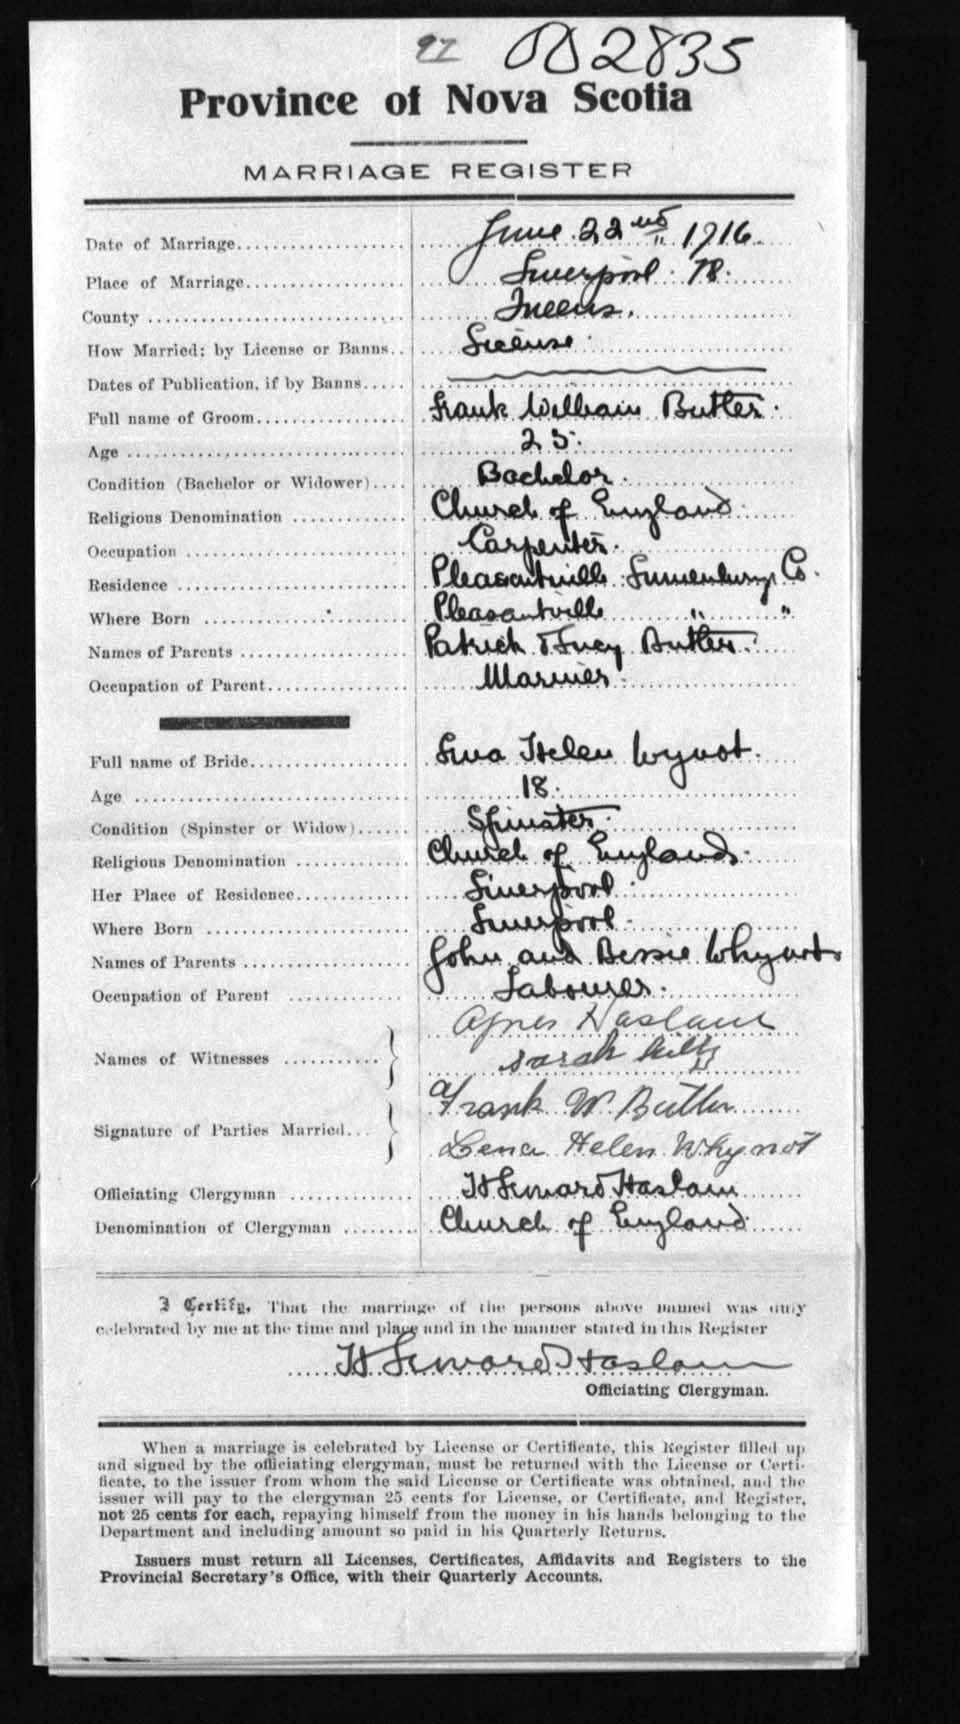 97 2835
Province of Nova Scotia
MARRIAGE REGISTER
Date of Marriage June 22nd 1916.
Place of Marriage Liverpool NS.
County Queens.
How Married: by License or Banns License
Dates of Publication, if by Banns
Full name of Groom Frank William Butler.
Age 25.
Condition (Bachelor or Widower) Bachelor.
Religious Denomination Church of England.
Occupation Carpenter.
Residence Pleasantville Lunenburg Co.
Where Born Pleasantville " "
Names of Parents Patrick & Lucy Butler.
Occupation of Parent Mariner.
Full name of Bride Lena Helen Wynot.
Age 18.
Condition (Spinster or Widow) Spinster.
Religious Denomination Church of England.
Her Place of Residence Liverpool.
Where Born Liverpool.
Names of Parents John and Bessie Whynot
Occupation of Parent Labourer.
Names of Witnesses Agnes Haslam
Sarah
Signature of Parties Married Frank W. Butler
Lena Helen Whynot
Officiating Clergyman H Seward Haslam
Denomination of Clergyman Church of England
I Certify, That the marriage of the persons above named was duly
celebrated by me at the time and place and in the manner stated in this Register
H Seward Haslam
Officiating Clergyman.
When a marriage is celebrated by License or Certificate, this Register filled up
and signed by the officiating clergyman, must be returned with the License or Certi-
ficate, to the issuer from whom the said License or Certificate was obtained, and the
issuer will pay to the clergyman 25 cents for License, or Certificate, and Register,
not 25 cents for each, repaying himself from the money in his hands belonging to the
Department and including amount so paid in his Quarterly Returns.
Issuers must return all Licenses, Certificates, Affidavits and Registers to the
Provincial Secretary's Office, with their Quarterly Accounts.